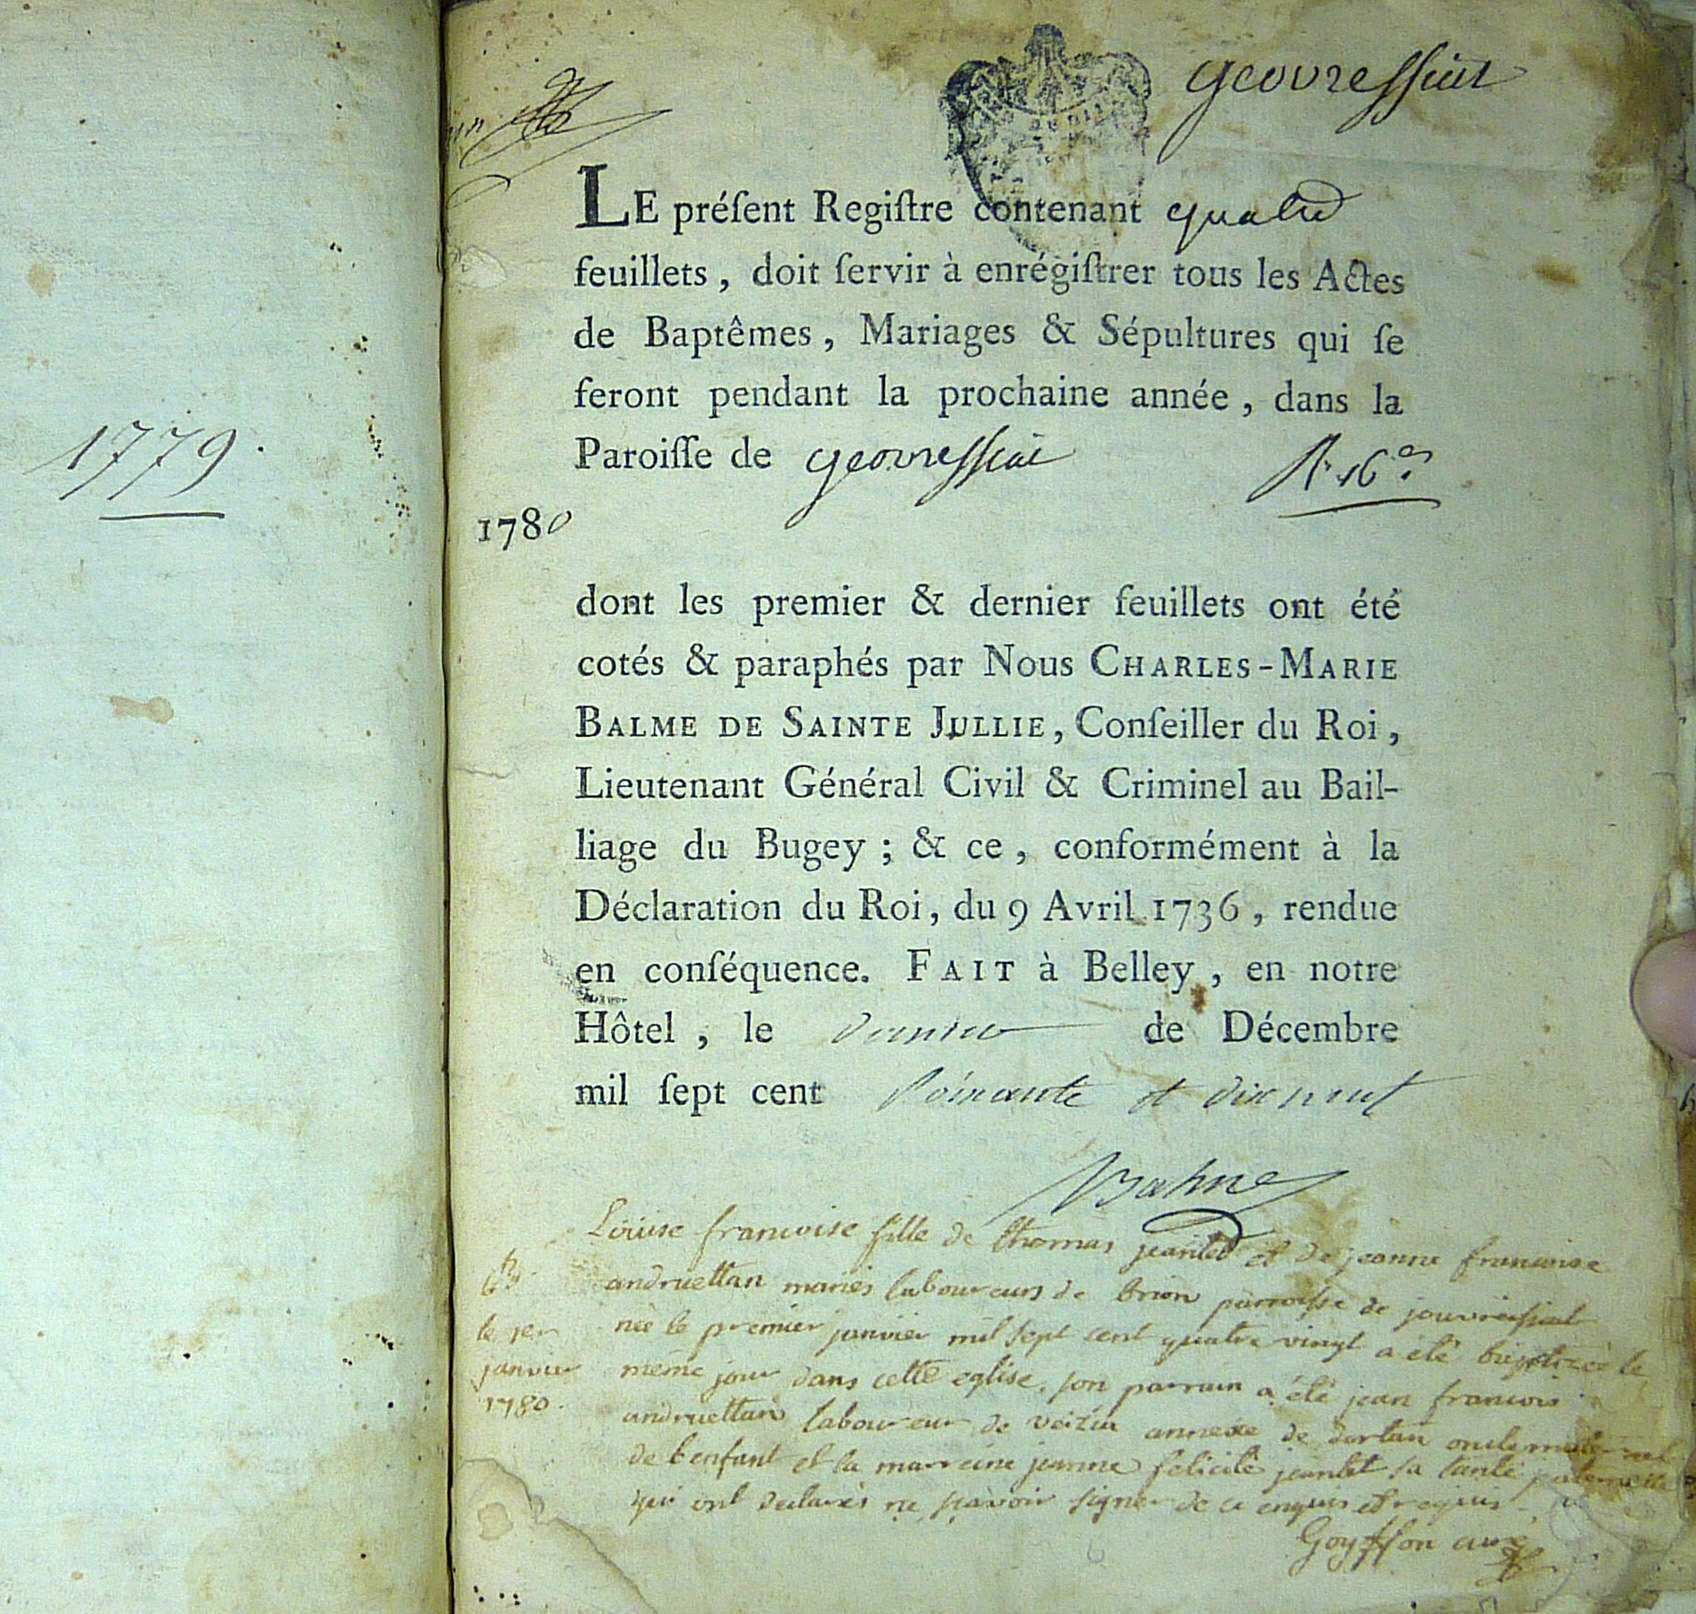 1779.
geovressiat
LE préſent Regiſtre contenant quatre
feuillets, doit ſervir à enrégiſtrer tous les Actes
de Baptêmes, Mariages & Sépultures qui ſe
feront pendant la prochaine année, dans la
Paroiſſe de geovressiat
1780
dont les premier & dernier feuillets ont été
cotés & paraphés par Nous CHARLES-MARIE
BALME DE SAINTE JULLIE, Conſeiller du Roi,
Lieutenant Général Civil & Criminel au Bail-
liage du Bugey; & ce, conformément à la
Déclaration du Roi, du 9 Avril 1736, rendue
en conſéquence. FAIT à Belley, en notre
Hôtel, le dernier de Décembre
mil ſept cent soixante et dix neuf
Balme
Louise francoise fille de thomas jeantet et de jeanne francoise
andruettan mariés laboureurs de brion parroisse de jouvressiat
née le premier janvier mil sept cent quatre vingt a été baptizée le
même jour dans cette eglise. son parrain a été jean francois
andruettan laboureur de veizia annexe de dortan oncle maternel
de l'enfant et la marreine jeanne felicité jeantet sa tante paternelle
qui ont declarés ne sçavoir signer de ce enquis et requis.
le 1er
janvier
1780.
Goyffon curé